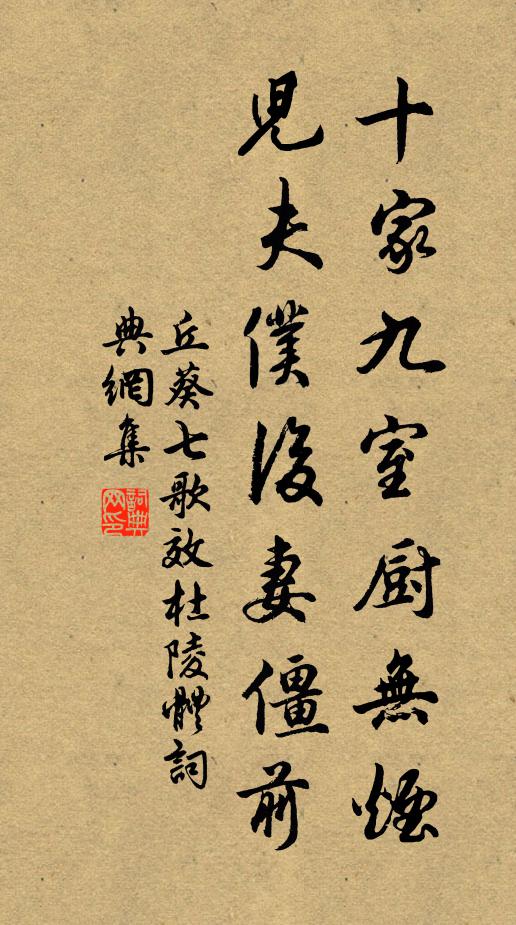 十家九室厨無煙
兒夫僕後妻僵前
丘葵七歌效杜陵體詞
典網集
詞典網印